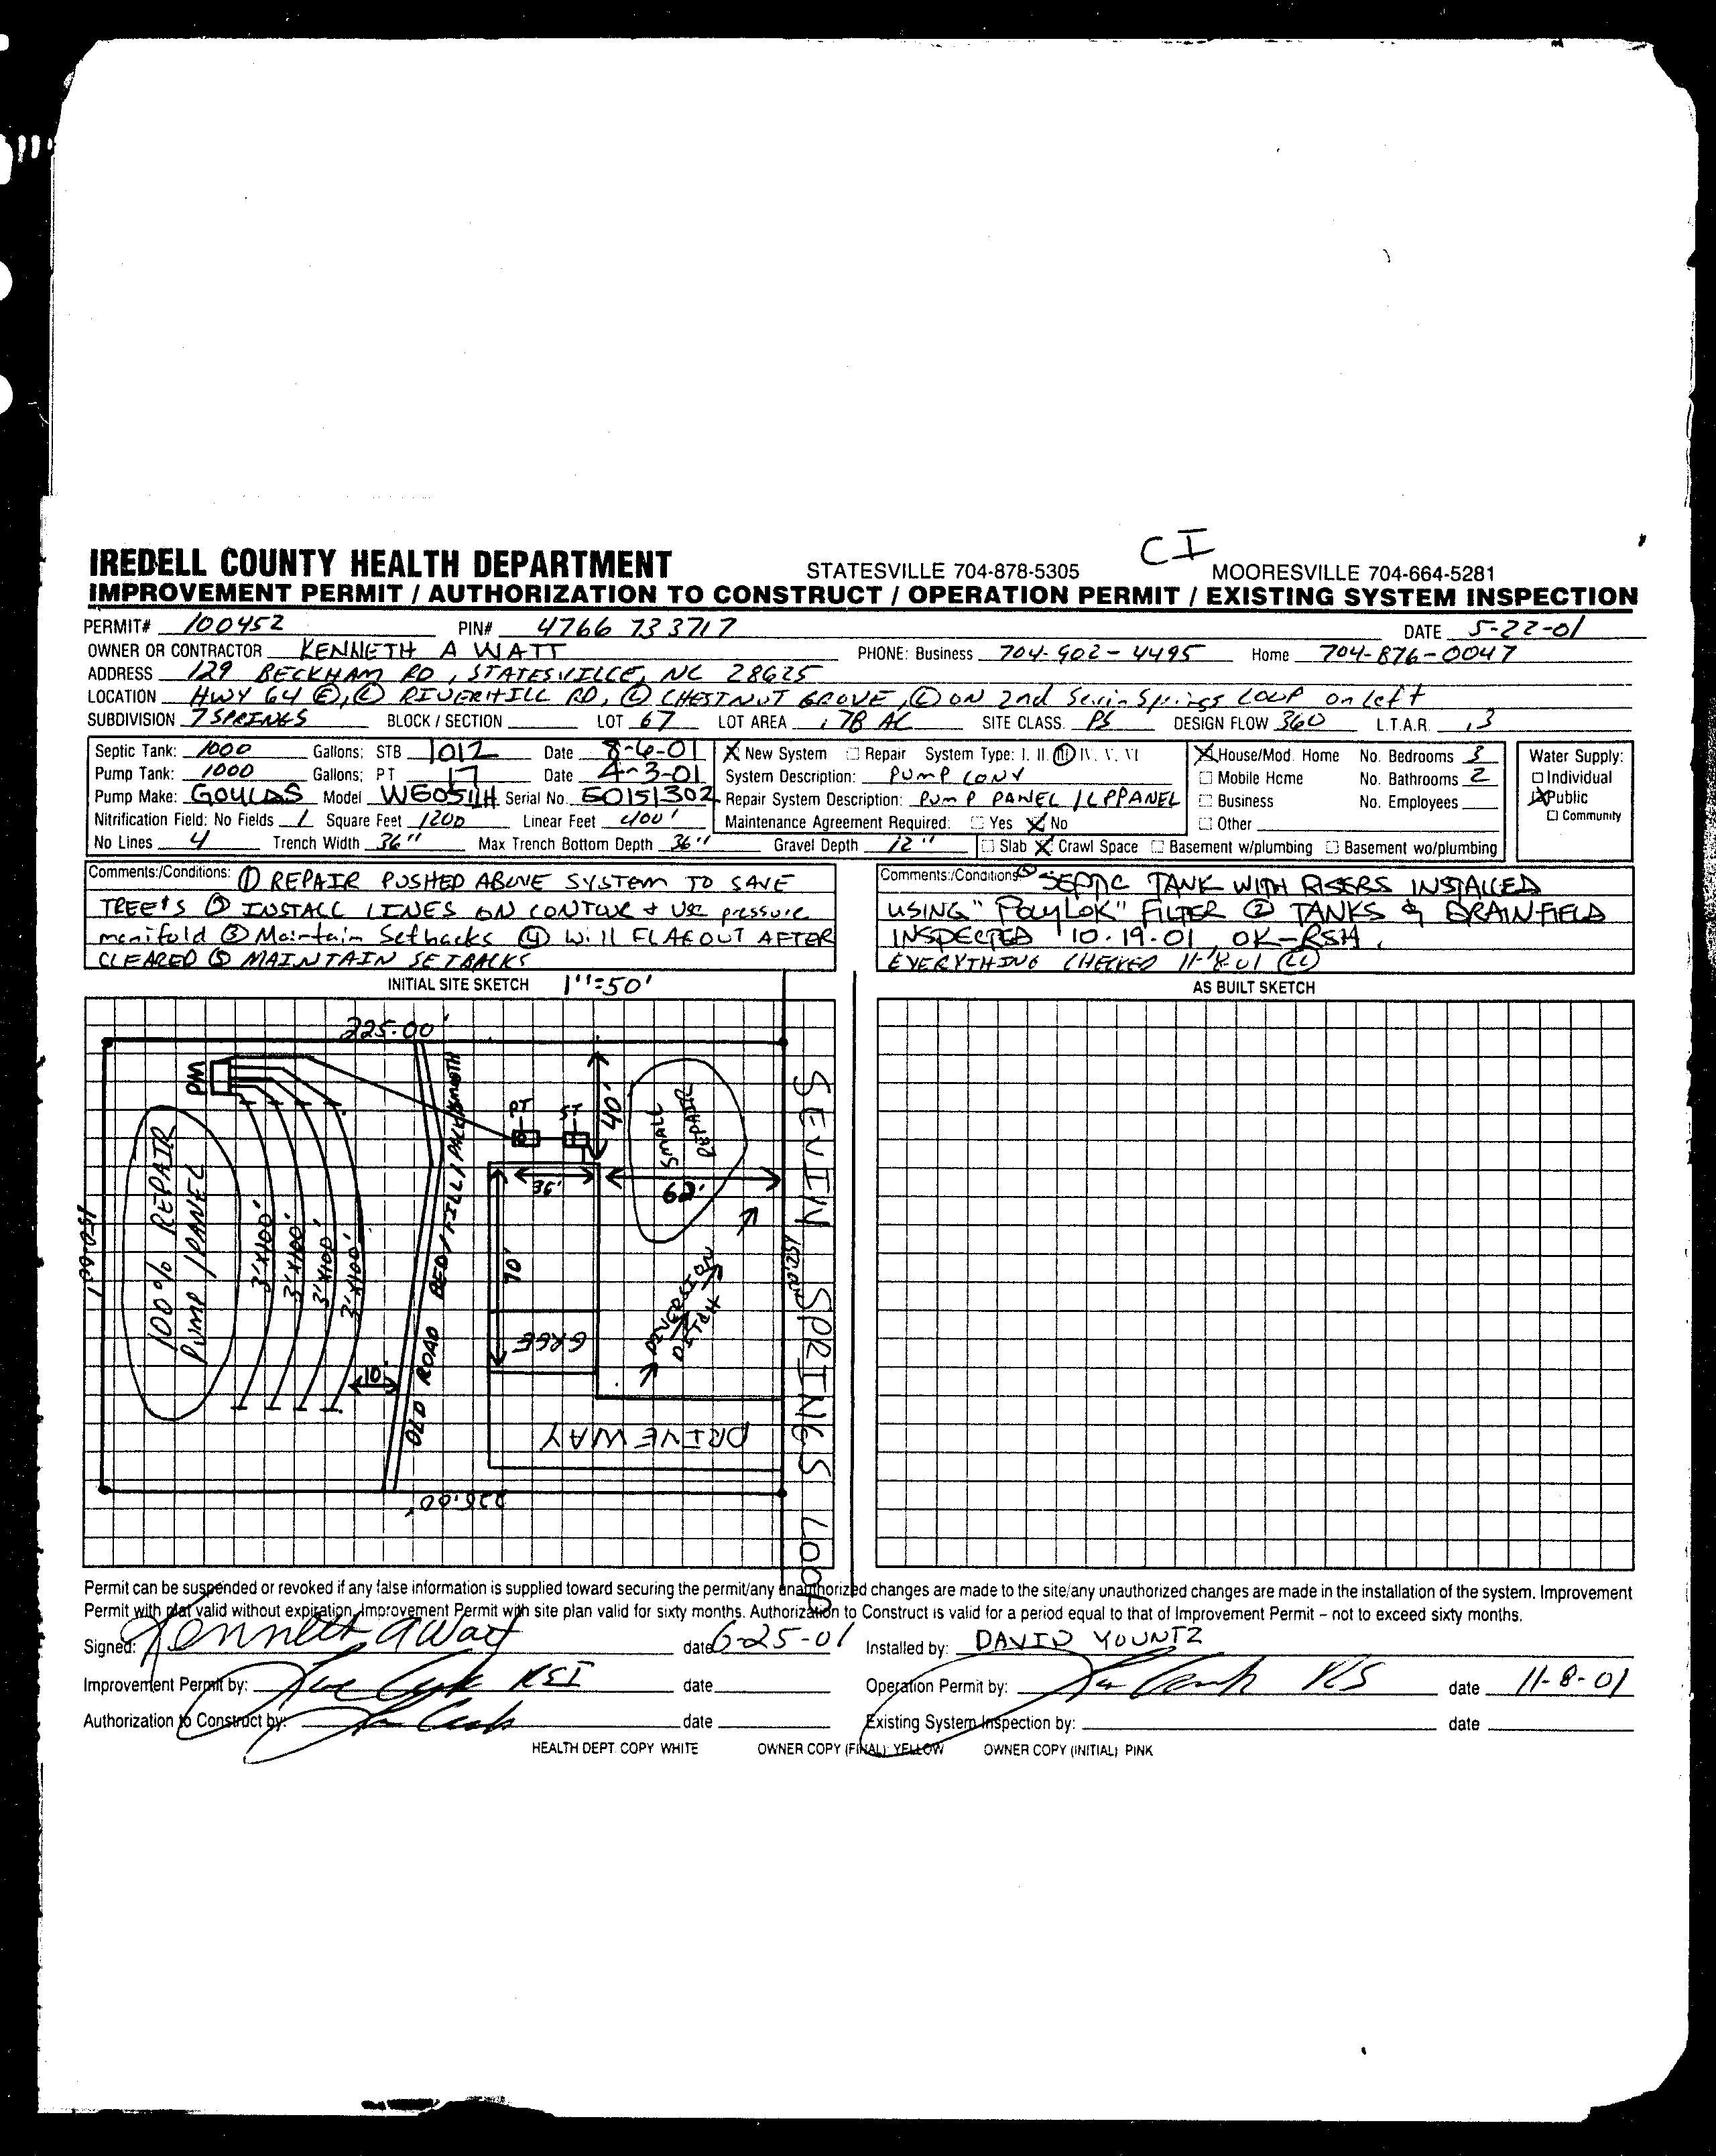 CI
IREDELL COUNTY HEALTH DEPARTMENT STATESVILLE 704-878-5305 MOORESVILLE 704-664-5281
IMPROVEMENT PERMIT / AUTHORIZATION TO CONSTRUCT / OPERATION PERMIT / EXISTING SYSTEM INSPECTION
PERMIT# 100452 PIN# 4766 733717 DATE 5-22-01
OWNER OR CONTRACTOR KENNETH A WATT PHONE: Business 704-902-4495 Home 704-876-0047
ADDRESS 129 BECKHAM RD, STATESVILLE, NC 28625
LOCATION HWY 64 (E), (L) RIVERHILL RD, (L) CHESTNUT GROVE, (L) ON 2nd Springs LOOP on left
SUBDIVISION 7 SPRINGS BLOCK / SECTION LOT 67 LOT AREA .78 AC SITE CLASS. PS DESIGN FLOW 360 L.T.A.R. .3
Septic Tank: 1000 Gallons; STB 1012 Date 8-6-01 X New System Repair System Type: I. II. III IV. V. VI X House/Mod. Home No. Bedrooms 3 Water Supply:
Pump Tank: 1000 Gallons; PT 17 Date 4-3-01 System Description: PUMP CONV Mobile Home No. Bathrooms 2 Individual
Pump Make: GOULDS Model WE0511H Serial No. E0151302 Repair System Description: PUMP PANEL / LPPANEL Business No. Employees X Public
Nitrification Field: No Fields 1 Square Feet 1200 Linear Feet 400' Maintenance Agreement Required: Yes X No Other Community
No Lines 4 Trench Width 36" Max Trench Bottom Depth 36" Gravel Depth 12" Slab X Crawl Space Basement w/plumbing Basement wo/plumbing
Comments:/Conditions: ① REPAIR PUSHED ABOVE SYSTEM TO SAVE
TREE'S ② INSTALL LINES ON CONTOUR + USE pressure
manifold ③ Maintain Setbacks ④ Will FLAGOUT AFTER
CLEARED ⑤ MAINTAIN SETBACKS
Comments:/Conditions: ① SEPTIC TANK WITH RISERS INSTALLED
USING "POLYLOK" FILTER ② TANKS & DRAINFIELD
INSPECTED 10-19-01, OK-RSH.
EVERYTHING CHECKED 11-8-01 (LC)
INITIAL SITE SKETCH 1"=50'
AS BUILT SKETCH
225.00'
PM
PT
ST
40'
SMALL REPAIR
36'
62'
150.00'
100% REPAIR
PUMP / PANEL
3'X100'
3'X100'
3'X100'
3'X100'
10'
OLD ROAD BED / FILL /
70'
GRGE
DIVERSION DITCH
150.00'
DRIVEWAY
225.00'
SEVIN SPRINGS LOOP
Permit can be suspended or revoked if any false information is supplied toward securing the permit/any unauthorized changes are made to the site/any unauthorized changes are made in the installation of the system. Improvement
Permit with plat valid without expiration. Improvement Permit with site plan valid for sixty months. Authorization to Construct is valid for a period equal to that of Improvement Permit – not to exceed sixty months.
Signed: Kenneth A Watt date 6-25-01 Installed by: DAVID YOUNTZ
Improvement Permit by: date Operation Permit by: RS date 11-8-01
Authorization to Construct by: date Existing System Inspection by: date
HEALTH DEPT. COPY WHITE OWNER COPY (FINAL) YELLOW OWNER COPY (INITIAL) PINK